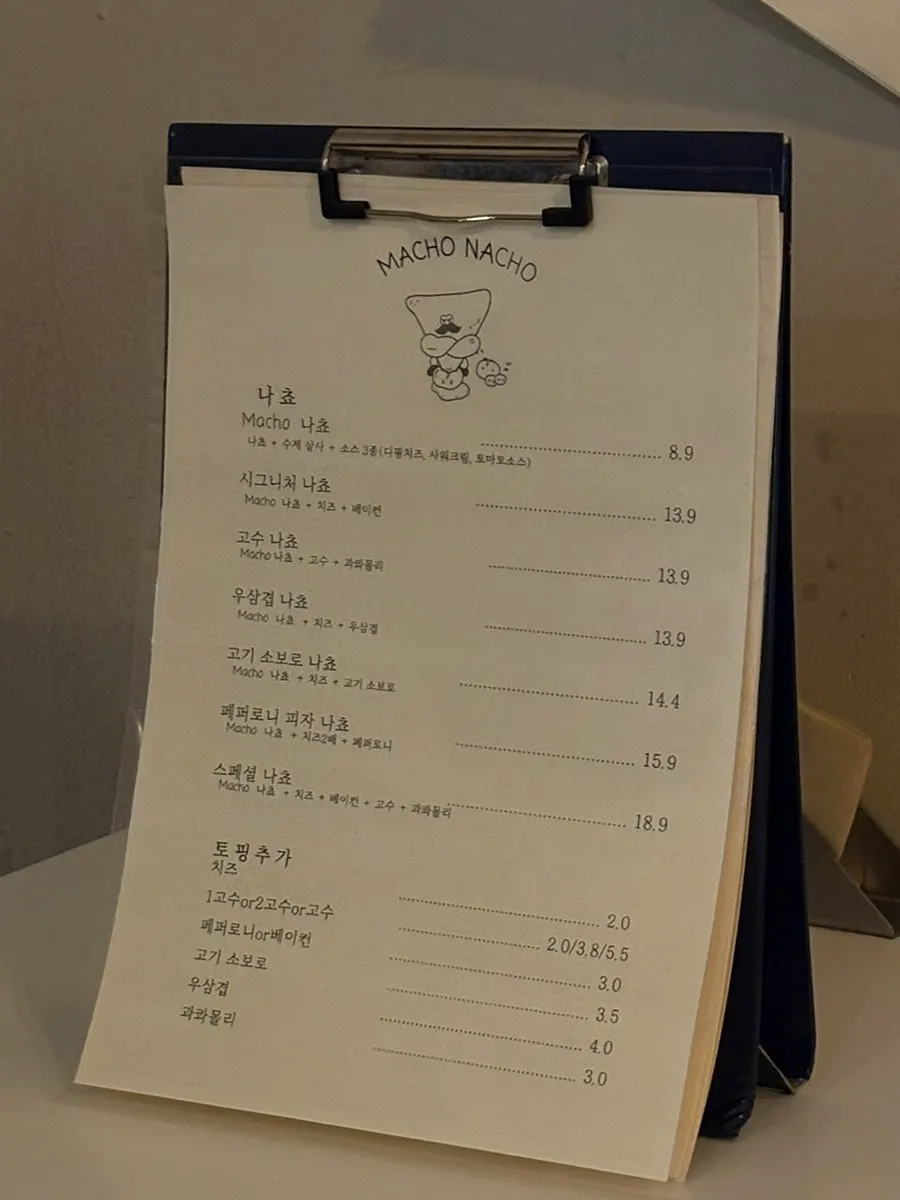 MACHO NACHO
나쵸
Macho 나쵸 8.9
나쵸 + 수제 살사 + 소스 3종(디핑치즈, 사워크림, 토마토소스)
시그니처 나쵸 13.9
Macho 나쵸 + 치즈 + 베이컨
고수 나쵸 13.9
Macho 나쵸 + 고수 + 과콰몰리
우삼겹 나쵸 13.9
Macho 나쵸 + 치즈 + 우삼겹
고기 소보로 나쵸 14.4
Macho 나쵸 + 치즈 + 고기 소보로
페퍼로니 피자 나쵸 15.9
Macho 나쵸 + 치즈2배 + 페퍼로니
스페셜 나쵸 18.9
Macho 나쵸 + 치즈 + 베이컨 + 고수 + 과콰몰리
토핑추가
치즈 2.0
1고수or2고수or고수 2.0/3.8/5.5
페퍼로니or베이컨 3.0
고기 소보로 3.5
우삼겹 4.0
과콰몰리 3.0